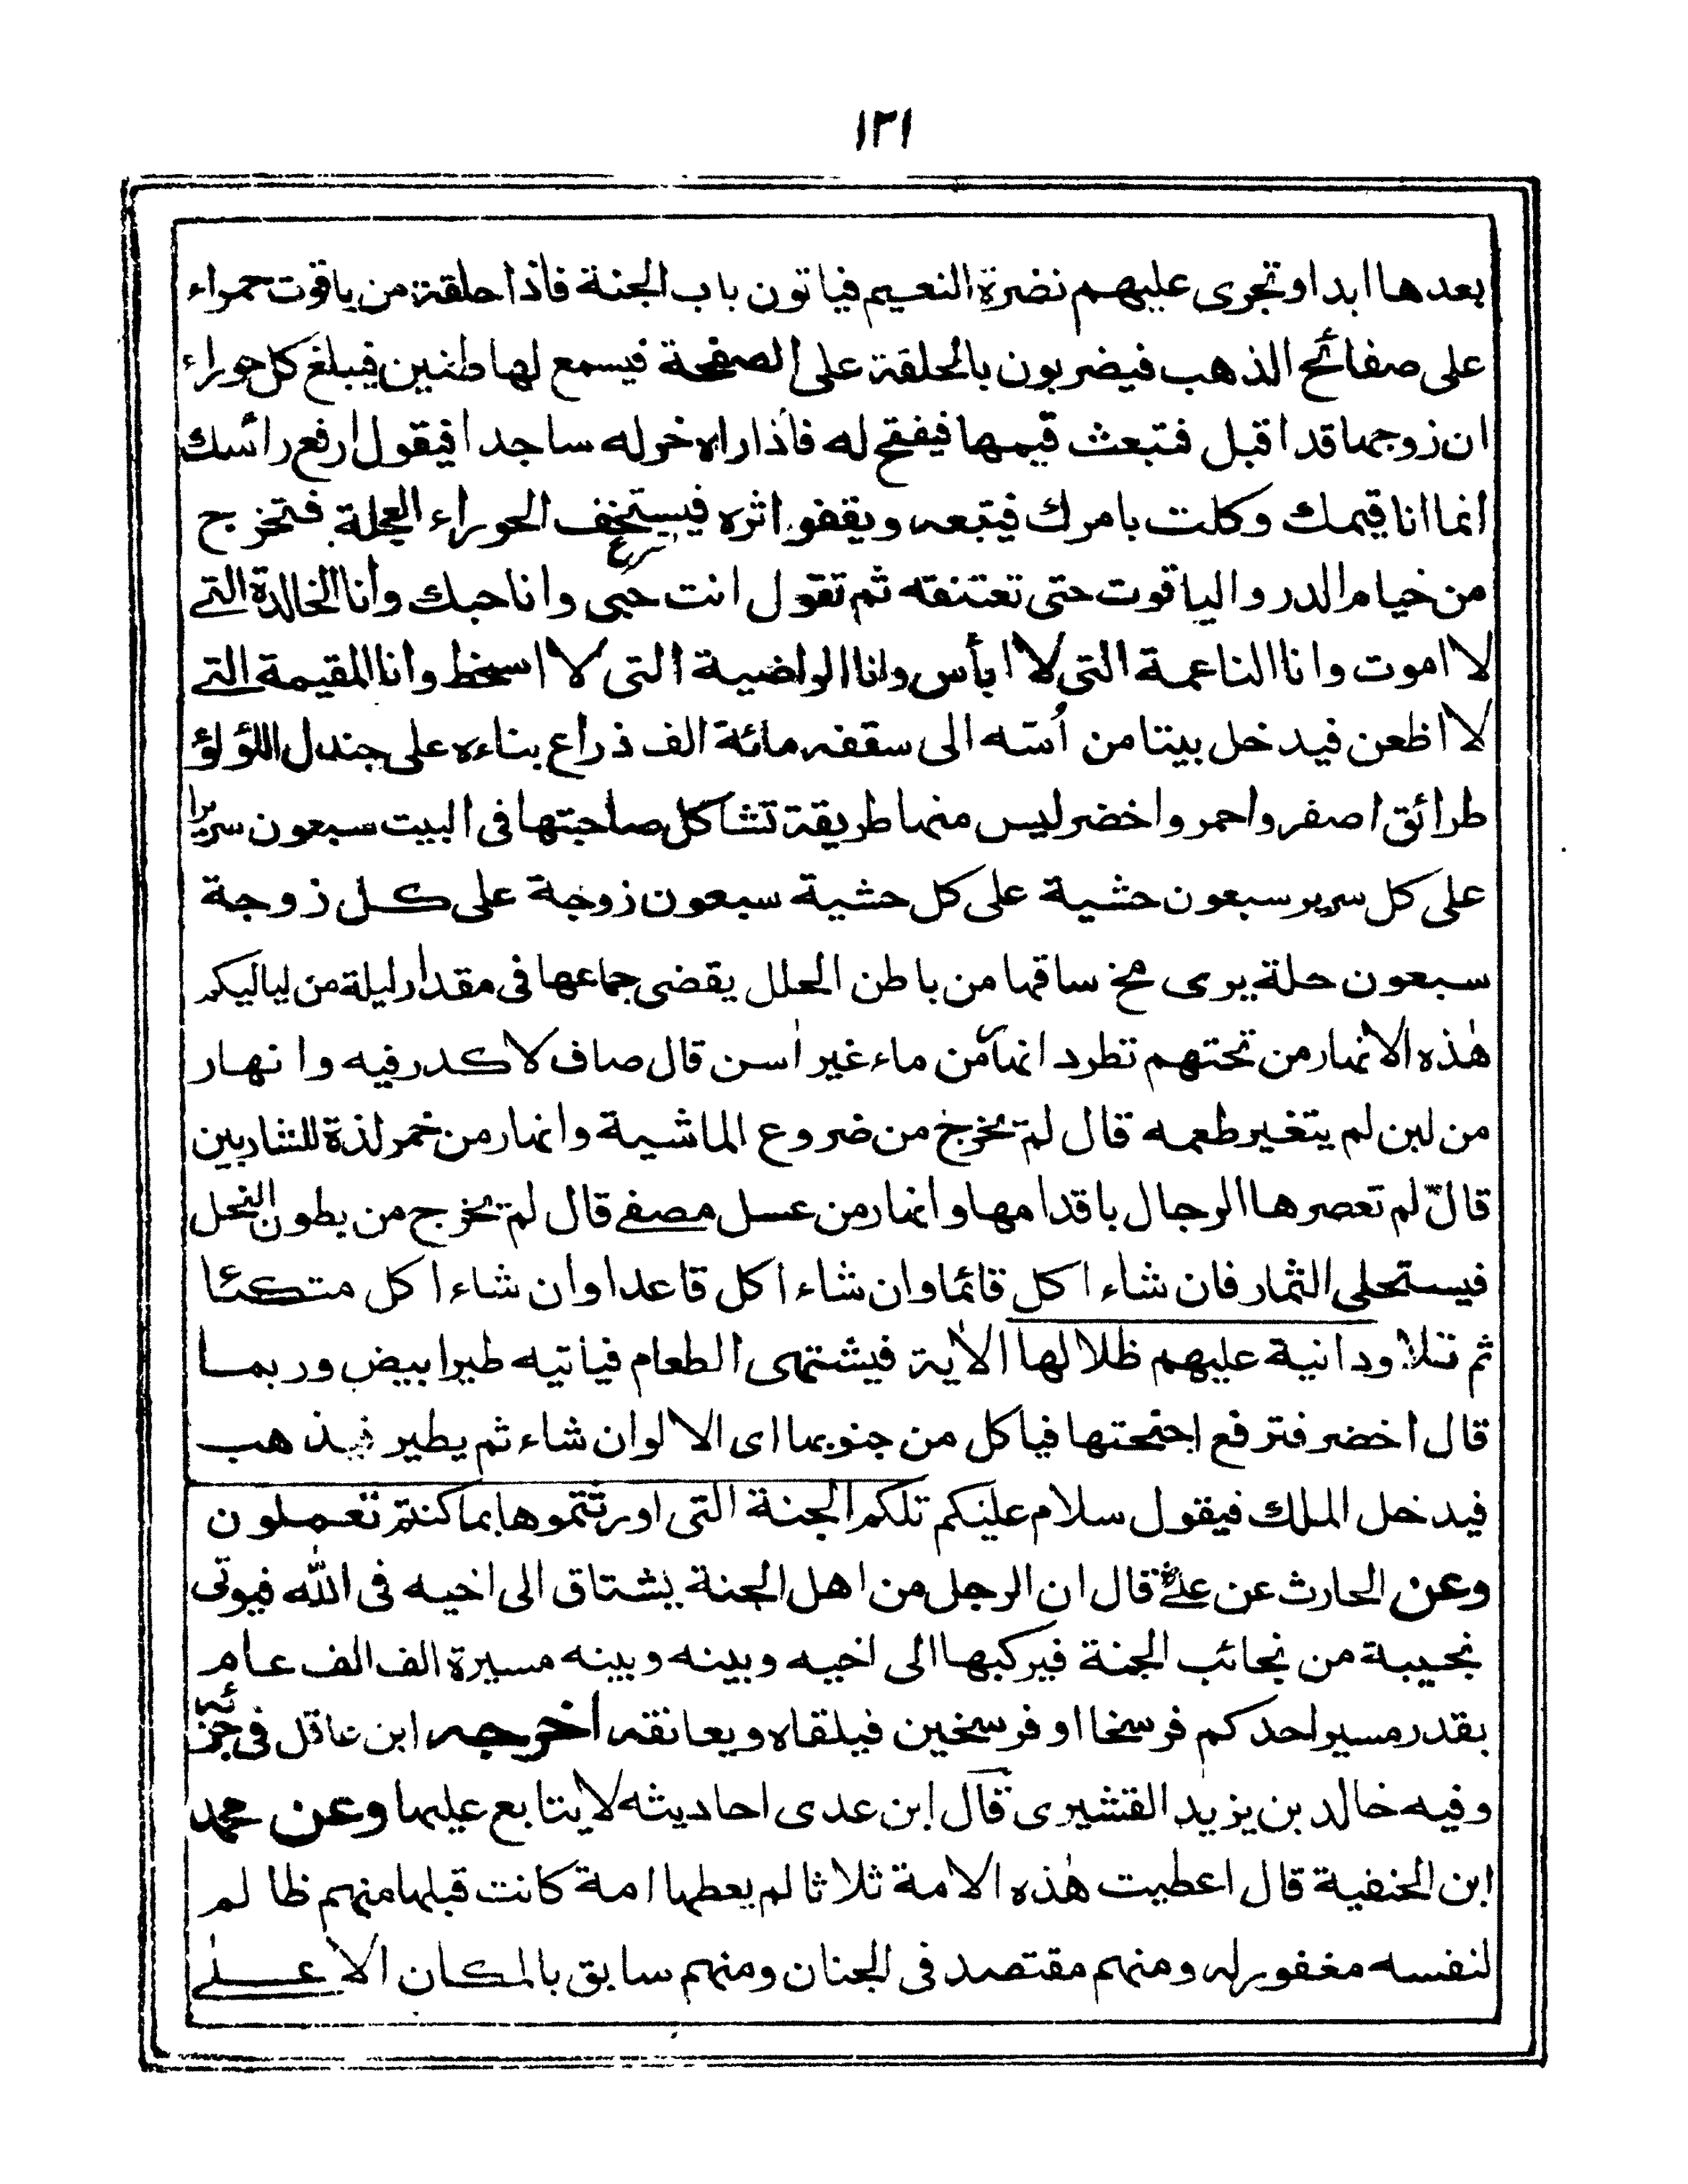 ١٣١
بعدها ابدا وتجرى عليهم نضرة النعيم فياتون باب الجنة فاذا حلقة من ياقوت حمراء
على صفائح الذهب فيضربون بالحلقة على الصفحة فيسمع لها طنين فيبلغ كل حوراء
ان زوجها قد اقبل فتبعث قيمها فيفتح له فأذا راه خر له ساجدا فيقول ارفع رائسك
انما انا قيمك وكلت بامرك فيتبعه ويقفو اثره فيستخف الحوراء العجلة فتخرج
من خيام الدر والياقوت حتى تعتنقه ثم تقول انت حبى وانا حبك وأنا الخالدة التے
لا اموت وانا الناعمة التى لا ابأس وانا الراضية التى لا اسخط وانا المقيمة التے
لا اظعن فيدخل بيتا من أسّه الى سقفه مائة الف ذراع بناءه على جندل اللؤلؤ
طرائق اصفر واحمر واخضر ليس منها طريقة تشاكل صاحبتها فى البيت سبعون سريرا
على كل سرير سبعون حشية على كل حشية سبعون زوجة على كل زوجة
سبعون حلة يرى مخ ساقها من باطن الحلل يقضى جماعها فى مقدار ليلة من لياليكم
هٰذه الانهار من تحتهم تطرد انهار من ماء غير اٰسن قال صاف لا كدر فيه وانهار
من لبن لم يتغير طعمه قال لم يخرج من ضروع الماشية وانهار من خمر لذة للشاربين
قال لم تعصرها الرجال باقدامها وانهار من عسل مصفے قال لم يخرج من بطون النحل
فيستحلى الثمار فان شاء اكل قائما وان شاء اكل قاعدا وان شاء اكل متكئا
ثم تلا ودانية عليهم ظلالها الاٰية فيشتهى الطعام فياتيه طير ابيض وربما
قال اخضر فترفع اجنحتها فياكل من جنوبها اى الالوان شاء ثم يطير فيذهب
فيدخل الملك فيقول سلام عليكم تلكم الجنة التى اورثتموها بما كنتم تعملون
وعن الحارث عن علے قال ان الرجل من اهل الجنة يشتاق الى اخيه فى الله فيوتى
نجيبة من نجائب الجنة فيركبها الى اخيه وبينه وبينه مسيرة الف الف عام
بقدر مسير احدكم فرسخا او فرسخين فيلقاه ويعانقه اخرجه ابن عاقل فى جزئه
وفيه خالد بن يزيد القشيرى قال ابن عدى احاديثه لا يتابع عليها وعن محمد
ابن الحنفية قال اعطيت هٰذه الامة ثلاثا لم يعطها امة كانت قبلها منهم ظالم
لنفسه مغفور له ومنهم مقتصد فى الجنان ومنهم سابق بالمكان الاعلے